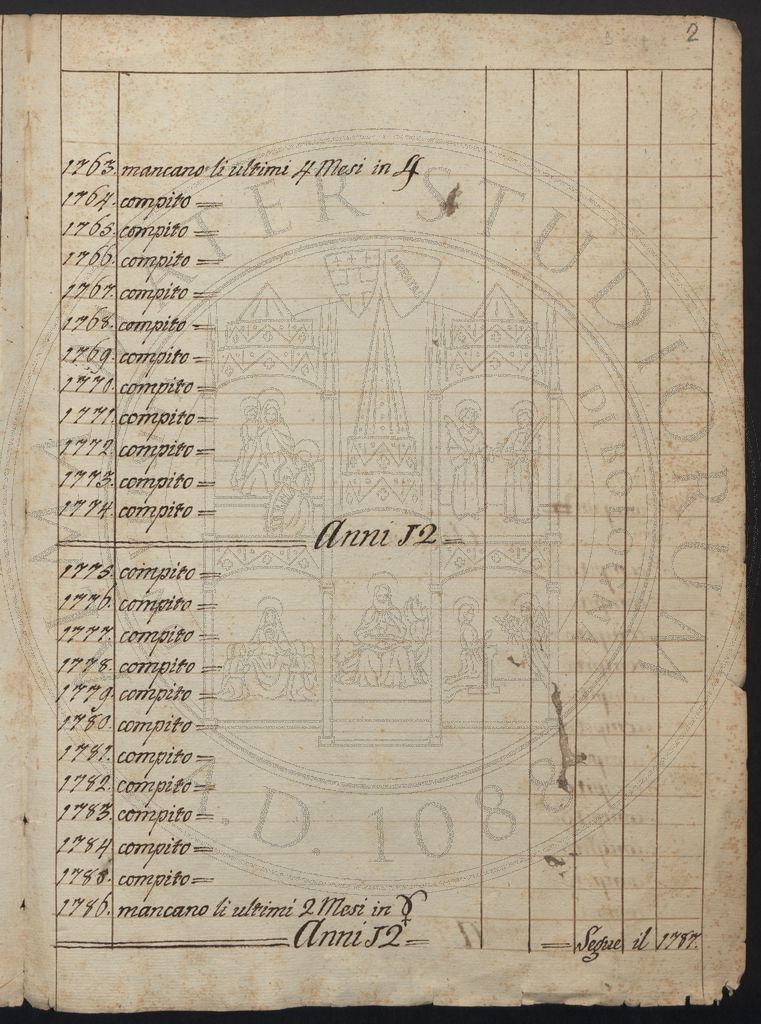 2
1763. mancano li ultimi 4 Mesi in
1764. compito =
1765. compito =
1766. compito =
1767. compito =
1768. compito =
1769. compito =
1770. compito =
1771. compito =
1772. compito =
1773. compito =
1774. compito =
Anni 12 =
1775. compito =
1776. compito =
1777. compito =
1778. compito =
1779. compito =
1780. compito =
1781. compito =
1782. compito =
1783. compito =
1784. compito =
1785. compito =
1786. mancano li ultimi 2 Mesi in
Anni 12 =
= Segue il 1787.
ALMA MATER STUDIORUM
A.D. 1088
LIBERTAS